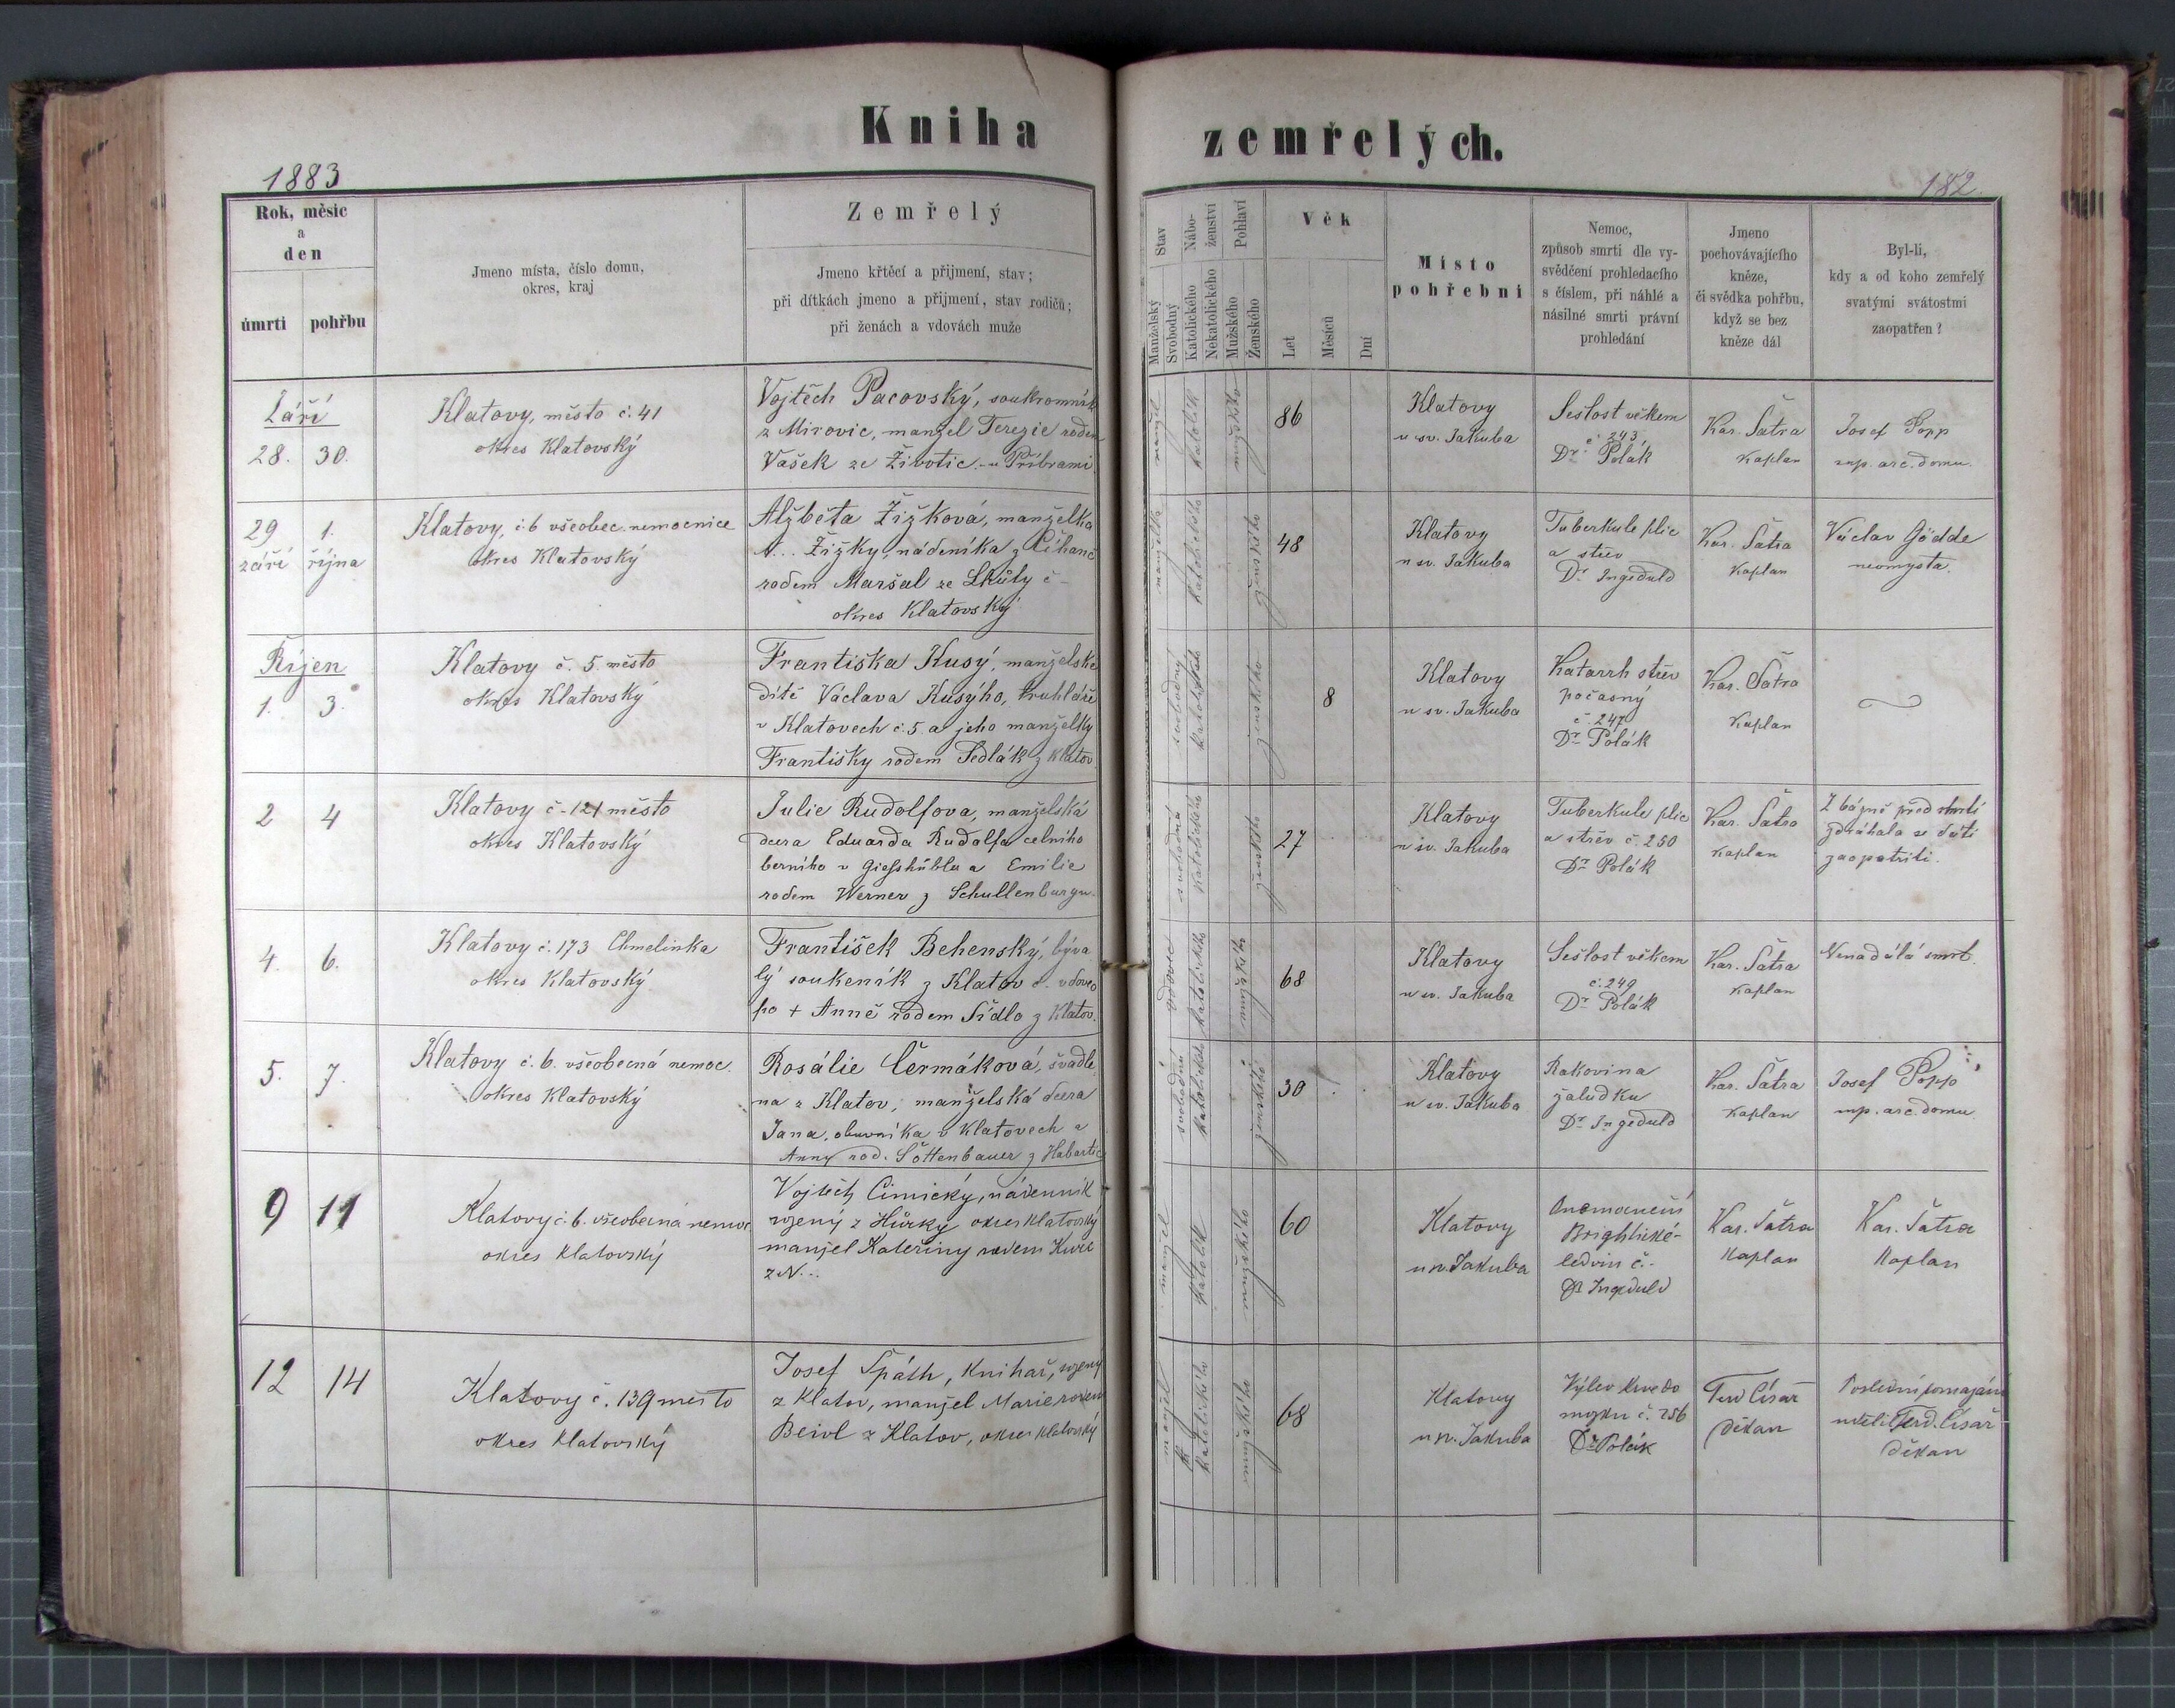 Kniha zemřelých.
1883
182.
Rok, měsíc
a
den
úmrtí pohřbu
Jmeno místa, číslo domu,
okres, kraj
Zemřelý
Jmeno křtěcí a přijmení, stav;
při dítkách jmeno a přijmení, stav rodičů;
při ženách a vdovách muže
Stav
Manželský
Svobodný
Nábo-
ženství
Katolického
Nekatolického
Pohlaví
Mužského
Ženského
Věk
Let
Měsíců
Dní
Místo
pohřební
Nemoc,
způsob smrti dle vy-
svědčení prohledacího
s číslem, při náhlé a
násilné smrti právní
prohledání
Jmeno
pochovávajícího
kněze,
či svědka pohřbu,
když se bez
kněze dál
Byl-li,
kdy a od koho zemřelý
svatými svátostmi
zaopatřen?
Září
28. 30.
Klatovy, město č. 41
okres Klatovský
Vojtěch Pacovský, soukromník
z Mirovic, manžel Terezie rodem
Vašek ze Životic u Příbrami
manžel
katolík
mužského
86
Klatovy
u sv. Jakuba
Sešlost věkem
č. 243,
Dr. Polák
Kar. Šatra
Kaplan
Josef Popp
sup. arc. domu.
29 1.
září října
Klatovy, č. 6 všeobec. nemocnice
okres Klatovský
Alžběta Žižková, manželka
N... Žižky, nádeníka z Číhaně
rodem Maršal ze Lhůty č -
okres Klatovský
manželka
katolického
ženského
48
Klatovy
u sv. Jakuba
Tuberkule plic
a střev
Dr. Ingeduld
Kar. Šatra
Kaplan
Václav Gödde
neomysta.
Říjen
1. 3.
Klatovy č. 5. město
okres Klatovský
Františka Kusý, manželské
dítě Václava Kusýho, truhláře
v Klatovech č. 5. a jeho manželky
Františky rodem Sedlák z Klatov
svobodný
katolické
ženského
8
Klatovy
u sv. Jakuba
Katarrh střev
počasný
č. 247
Dr. Polák
Kar. Šatra
Kaplan
2 4
Klatovy č - 121 město
okres Klatovský
Julie Rudolfova, manželská
dcera Eduarda Rudolfa celního
berního v Giesshüblu a Emilie
rodem Werner z Schullenburgu.
svobodná
katolického
ženského
27
Klatovy
u sv. Jakuba
Tuberkule plic
a střev č. 250
Dr. Polák
Kar. Šatra
Kaplan
Z bázně před smrtí
zdráhala se dáti
zaopatřiti.
4. 6.
Klatovy č. 173 Chmelinka
okres Klatovský
František Behenský, býva
lý soukeník z Klatov č. vdovec
po + Anně rodem Sídlo z Klatov.
vdovec
katolického
mužského
68
Klatovy
u sv. Jakuba
Sešlost věkem
č. 249
Dr. Polák
Kar. Šatra
Kaplan
Nenadálá smrt.
5. 7.
Klatovy č. 6. všeobecná nemoc.
okres Klatovský
Rosálie Čermáková, švadle
na z Klatov, manželská dcera
Jana, obuvníka v Klatovech a
Anny rod. Söttenbauer z Habartic
svobodná
katolického
ženského
30
Klatovy
u sv. Jakuba
Rakovina
žaludku
Dr. Ingeduld
Kar. Šatra
Kaplan
Josef Popp
sup. arc. domu
9 11
Klatovy č. 6. všeobecná nemoc
okres Klatovský
Vojtěch Cimický, nádenník
rozený z Hůrky okres Klatovský
manžel Kateřiny rodem
z N...
manžel
katolík
mužského
60
Klatovy
u sv. Jakuba
Onemocnění
Brightické-
ledvin č.-
Dr Ingeduld
Kar. Šatra
Kaplan
Kar. Šatra
Kaplan
12 14
Klatovy č. 139 město
okres Klatovský
Josef Späth, knihař, rozený
z Klatov, manžel Marie rodem
Beivl z Klatov, okres Klatovský
manžel
katolického
mužského
68
Klatovy
u sv. Jakuba
Výlev krve do
mozku č. 256
Dr Polák
Ferd Císař
Děkan
Poslední pomazání
udělil Ferd. Císař
Děkan